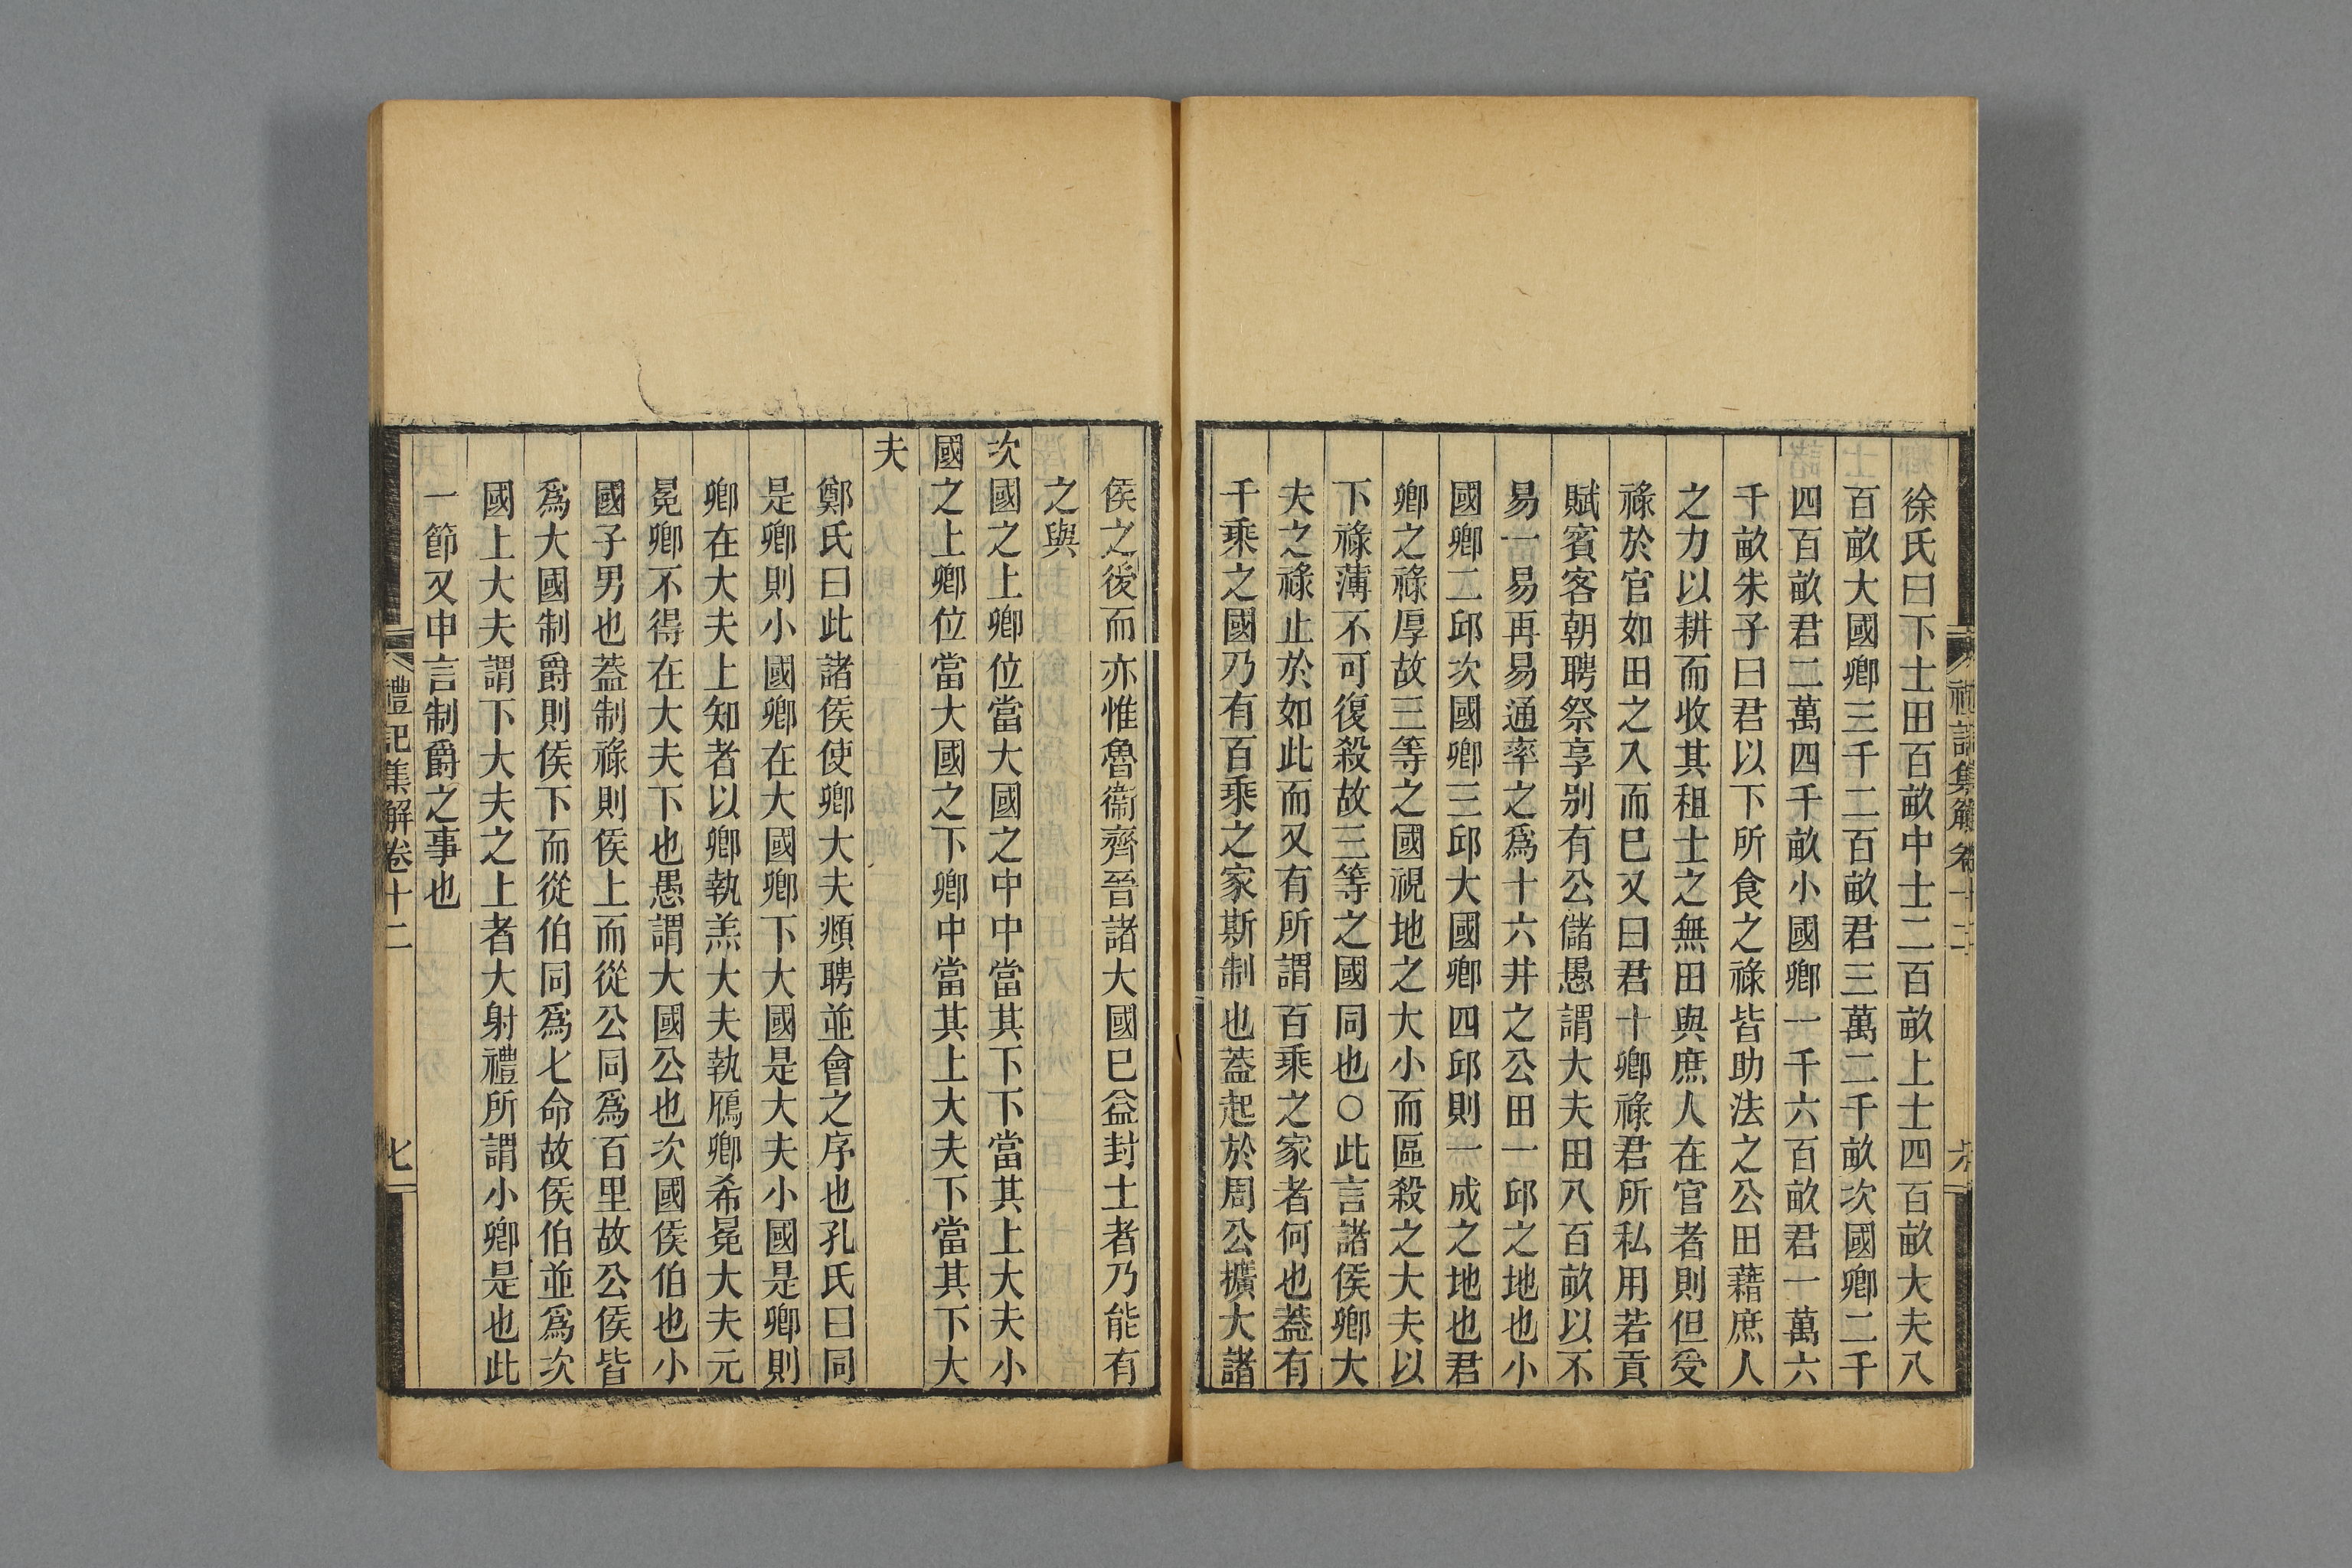 徐氏曰下士田百畝中士二百畝上士四百畝大夫八
百畝大國卿三千二百畝君三萬二千畝次國卿二千
四百畝君二萬四千畝小國卿一千六百畝君一萬六
千畝朱子曰君以下所食之祿皆助法之公田藉庶人
之力以耕而收其租士之無田與庶人在官者則但受
祿於官如田之入而巳又曰君十卿祿君所私用若貢
賦賓客朝聘祭享别有公儲愚謂大夫田八百畝以不
易一易再易通率之爲十六井之公田一邱之地也小
國卿二邱次國卿三邱大國卿四邱則一成之地也君
卿之祿厚故三等之國視地之大小而區殺之大夫以
下祿薄不可復殺故三等之國同也○此言諸侯卿大
夫之祿止於如此而又有所謂百乘之家者何也葢有
千乘之國乃有百乘之家斯制也葢起於周公擴大諸
侯之後而亦惟魯衞齊晉諸大國巳益封土者乃能有
之與
次國之上卿位當大國之中中當其下下當其上大夫小
國之上卿位當大國之下卿中當其上大夫下當其下大
夫
鄭氏曰此諸侯使卿大夫頫聘並會之序也孔氏曰同
是卿則小國卿在大國卿下大國是大夫小國是卿則
卿在大夫上知者以卿執羔大夫執鴈卿希冕大夫元
冕卿不得在大夫下也愚謂大國公也次國侯伯也小
國子男也葢制祿則侯上而從公同爲百里故公侯皆
爲大國制爵則侯下而從伯同爲七命故侯伯並爲次
國上大夫謂下大夫之上者大射禮所謂小卿是也此
一節又申言制爵之事也
禮記集解卷十二
七